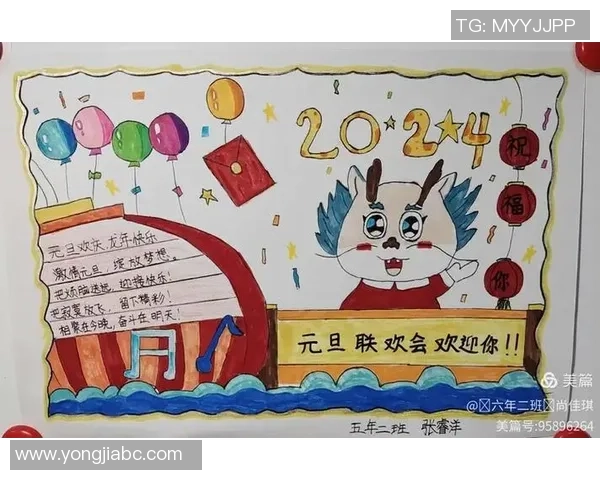 TG: MYYJJPP
2024
祝
福
你
元旦欢庆 龙年快乐
激情元旦，绽放梦想。
把烦脑送远，迎接快乐！
把寂寞放飞，留下精彩！
相聚在今晚，奋斗在明天！
元旦联欢会欢迎你!!
五年二班 张睿洋
美篇
@六年二班尚佳琪
美篇号:95896264
www.yongjiabc.com